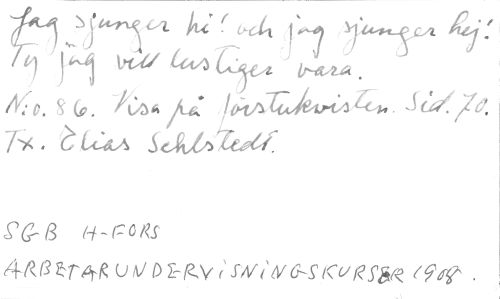 Jag sjunger hi! och jag sjunger hej!
Ty jag vill lustiger vara.
N:o. 86. Visa på förstukvisten. Sid. 70.
Tx. Elias Sehlstedt.
SGB H-FORS
ARBETARUNDERVISNINGSKURSER 1908.